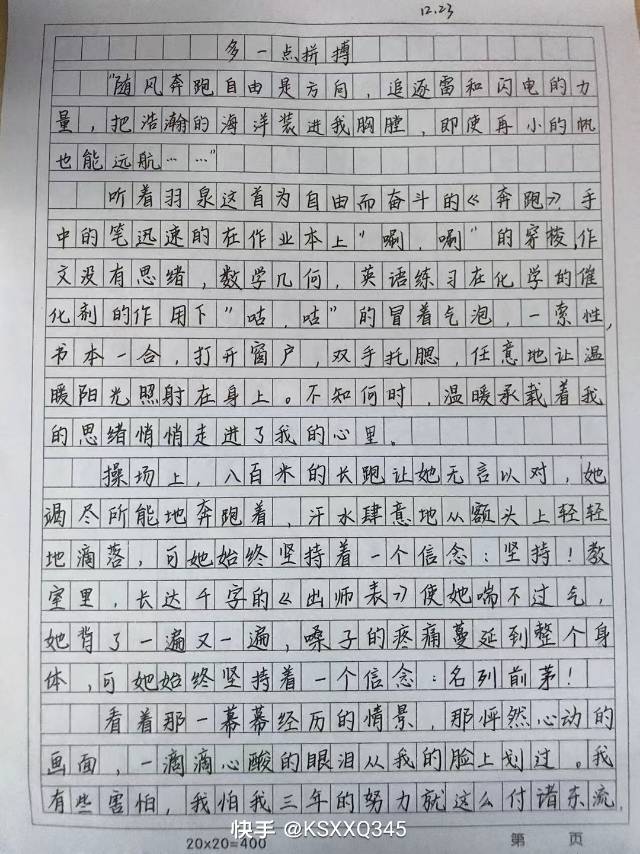 12.23
多一点拼搏
“随风奔跑自由是方向，追逐雷和闪电的力
量，把浩瀚的海洋装进我胸膛，即使再小的帆
也能远航……”
听着羽泉这首为自由而奋斗的《奔跑》手
中的笔迅速的在作业本上“唰，唰”的穿梭作
文没有思绪，数学几何，英语练习在化学的催
化剂的作用下“咕，咕”的冒着气泡，一索性，
书本一合，打开窗户，双手托腮，任意地让温
暖阳光照射在身上。不知何时，温暖承载着我
的思绪悄悄走进了我的心里。
操场上，八百米的长跑让她无言以对，她
竭尽所能地奔跑着，汗水肆意地从额头上轻轻
地滴落，可她始终坚持着一个信念：坚持！教
室里，长达千字的《出师表》使她喘不过气，
她背了一遍又一遍，嗓子的疼痛蔓延到整个身
体，可她始终坚持着一个信念：名列前茅！
看着那一幕幕经历的情景，那怦然心动的
画面，一滴滴心酸的眼泪从我的脸上划过。我
有些害怕，我怕我三年的努力就这么付诸东流，
20×20=400
快手 @KSXXQ345
第 页